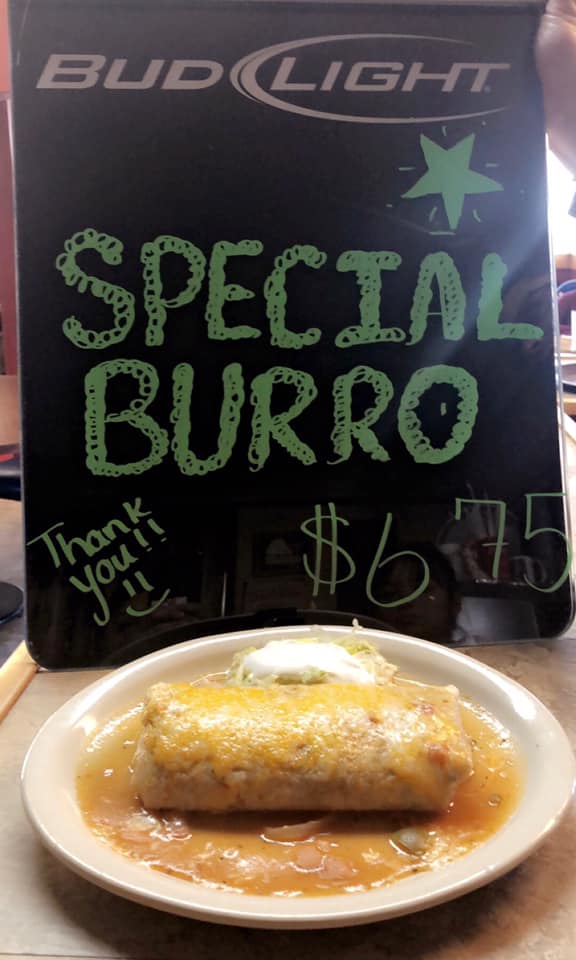 BUD LIGHT
SPECIAL
BURRO
Thank
you!!
$6 75